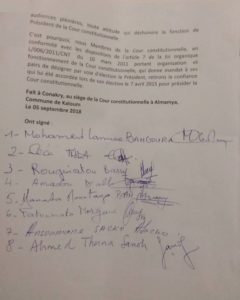 audiences plénières, toute attitude qui déshonore la fonction de
Président de la Cour constitutionnelle
C'est pourquoi, nous Membres de la Cour constitutionnelle, en
conformité avec les dispositions de l'article 7 de la loi organique
L/006/2011/CNT du 10 mars 2011 portant organisation et
fonctionnement de la Cour constitutionnelle, qui donne mandat à ses
pairs de désigner par voie d'élection le Président, retirons la confiance
qui lui été accordée lors de son élection le 7 avril 2015 pour présider la
Cour constitutionnelle.
Fait à Conakry, au siège de la Cour constitutionnelle à Almamya,
Commune de Kaloum
Le 05 septembre 2018
Ont signé :
1- Mohamed Lamine BANGOURA
2-
3- Rouguiatou Barry
4- Amadou Diallo
5-
6-
7-
8- Ahmed Therna Sanoh